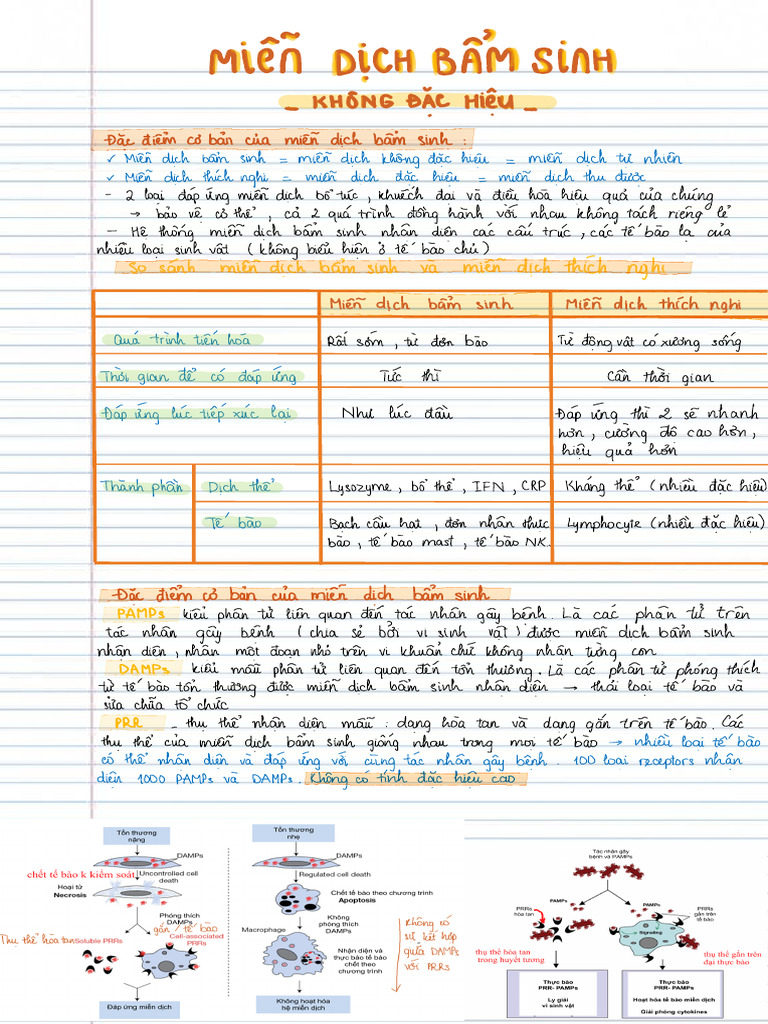 MIỄN DỊCH BẨM SINH
_ KHÔNG ĐẶC HIỆU _
Đặc điểm cơ bản của miễn dịch bẩm sinh :
✓ Miễn dịch bẩm sinh = miễn dịch không đặc hiệu = miễn dịch tự nhiên
✓ Miễn dịch thích nghi = miễn dịch đặc hiệu = miễn dịch thu được
- 2 loại đáp ứng miễn dịch bổ túc, khuếch đại và điều hòa hiệu quả của chúng
→ bảo vệ cơ thể, cả 2 quá trình đồng hành với nhau không tách riêng lẻ
- Hệ thống miễn dịch bẩm sinh nhận diện các cấu trúc, các tế bào lạ của
nhiều loại sinh vật (không biểu hiện ở tế bào chủ)
So sánh miễn dịch bẩm sinh và miễn dịch thích nghi
Miễn dịch bẩm sinh
Miễn dịch thích nghi
Quá trình tiến hóa
Rất sớm, từ đơn bào
Từ động vật có xương sống
Thời gian để có đáp ứng
Tức thì
Cần thời gian
Đáp ứng lúc tiếp xúc lại
Như lúc đầu
Đáp ứng thì 2 sẽ nhanh
hơn, cường độ cao hơn,
hiệu quả hơn
Thành phần
Dịch thể
Lysozyme, bổ thể, IFN, CRP
Kháng thể (nhiều đặc hiệu)
Tế bào
Bạch cầu hạt, đơn nhân thực
bào, tế bào mast, tế bào NK.
Lymphocyte (nhiều đặc hiệu)
Đặc điểm cơ bản của miễn dịch bẩm sinh
PAMPs kiểu phân tử liên quan đến tác nhân gây bệnh. Là các phân tử trên
tác nhân gây bệnh (chia sẻ bởi vi sinh vật) được miễn dịch bẩm sinh
nhận diện, nhận một đoạn nhỏ trên vi khuẩn chứ không nhận từng con
DAMPs kiểu mẫu phân tử liên quan đến tổn thương. Là các phân tử phóng thích
từ tế bào tổn thương được miễn dịch bẩm sinh nhận diện → thải loại tế bào và
sửa chữa tổ chức
PRR _ thụ thể nhận diện mẫu : dạng hòa tan và dạng gắn trên tế bào. Các
thụ thể của miễn dịch bẩm sinh giống nhau trong mọi tế bào → nhiều loại tế bào
có thể nhận diện và đáp ứng với cùng tác nhân gây bệnh. 100 loại receptors nhận
diện 1000 PAMPs và DAMPs. Không có tính đặc hiệu cao
Tổn thương
nặng
DAMPs
chết tế bào k kiểm soát
Uncontrolled cell
death
Hoại tử
Necrosis
Phóng thích
DAMPs
gắn / tế bào
Thụ thể hòa tan
Soluble PRRs
Cell-associated
PRRs
Đáp ứng miễn dịch
Tổn thương
nhẹ
DAMPs
Regulated cell
death
Chết tế bào theo chương trình
Apoptosis
Không
phóng thích
DAMPs
Macrophage
Nhận diện và
thực bào tế bào
chết theo
chương trình
Không có
sự kết hợp
giữa DAMPs
với PRRs
Không hoạt hóa
hệ miễn dịch
Tác nhân gây
bệnh và PAMPs
PAMPs
PAMPs
PRRs
hòa tan
PRRs
gắn trên
tế bào
Signaling
thụ thể hòa tan
trong huyết tương
thụ thể gắn trên
đại thực bào
Thực bào
PRR- PAMPs
Ly giải
vi sinh vật
Thực bào
PRR- PAMPs
Hoạt hóa tế bào miễn dịch
Giải phóng cytokines